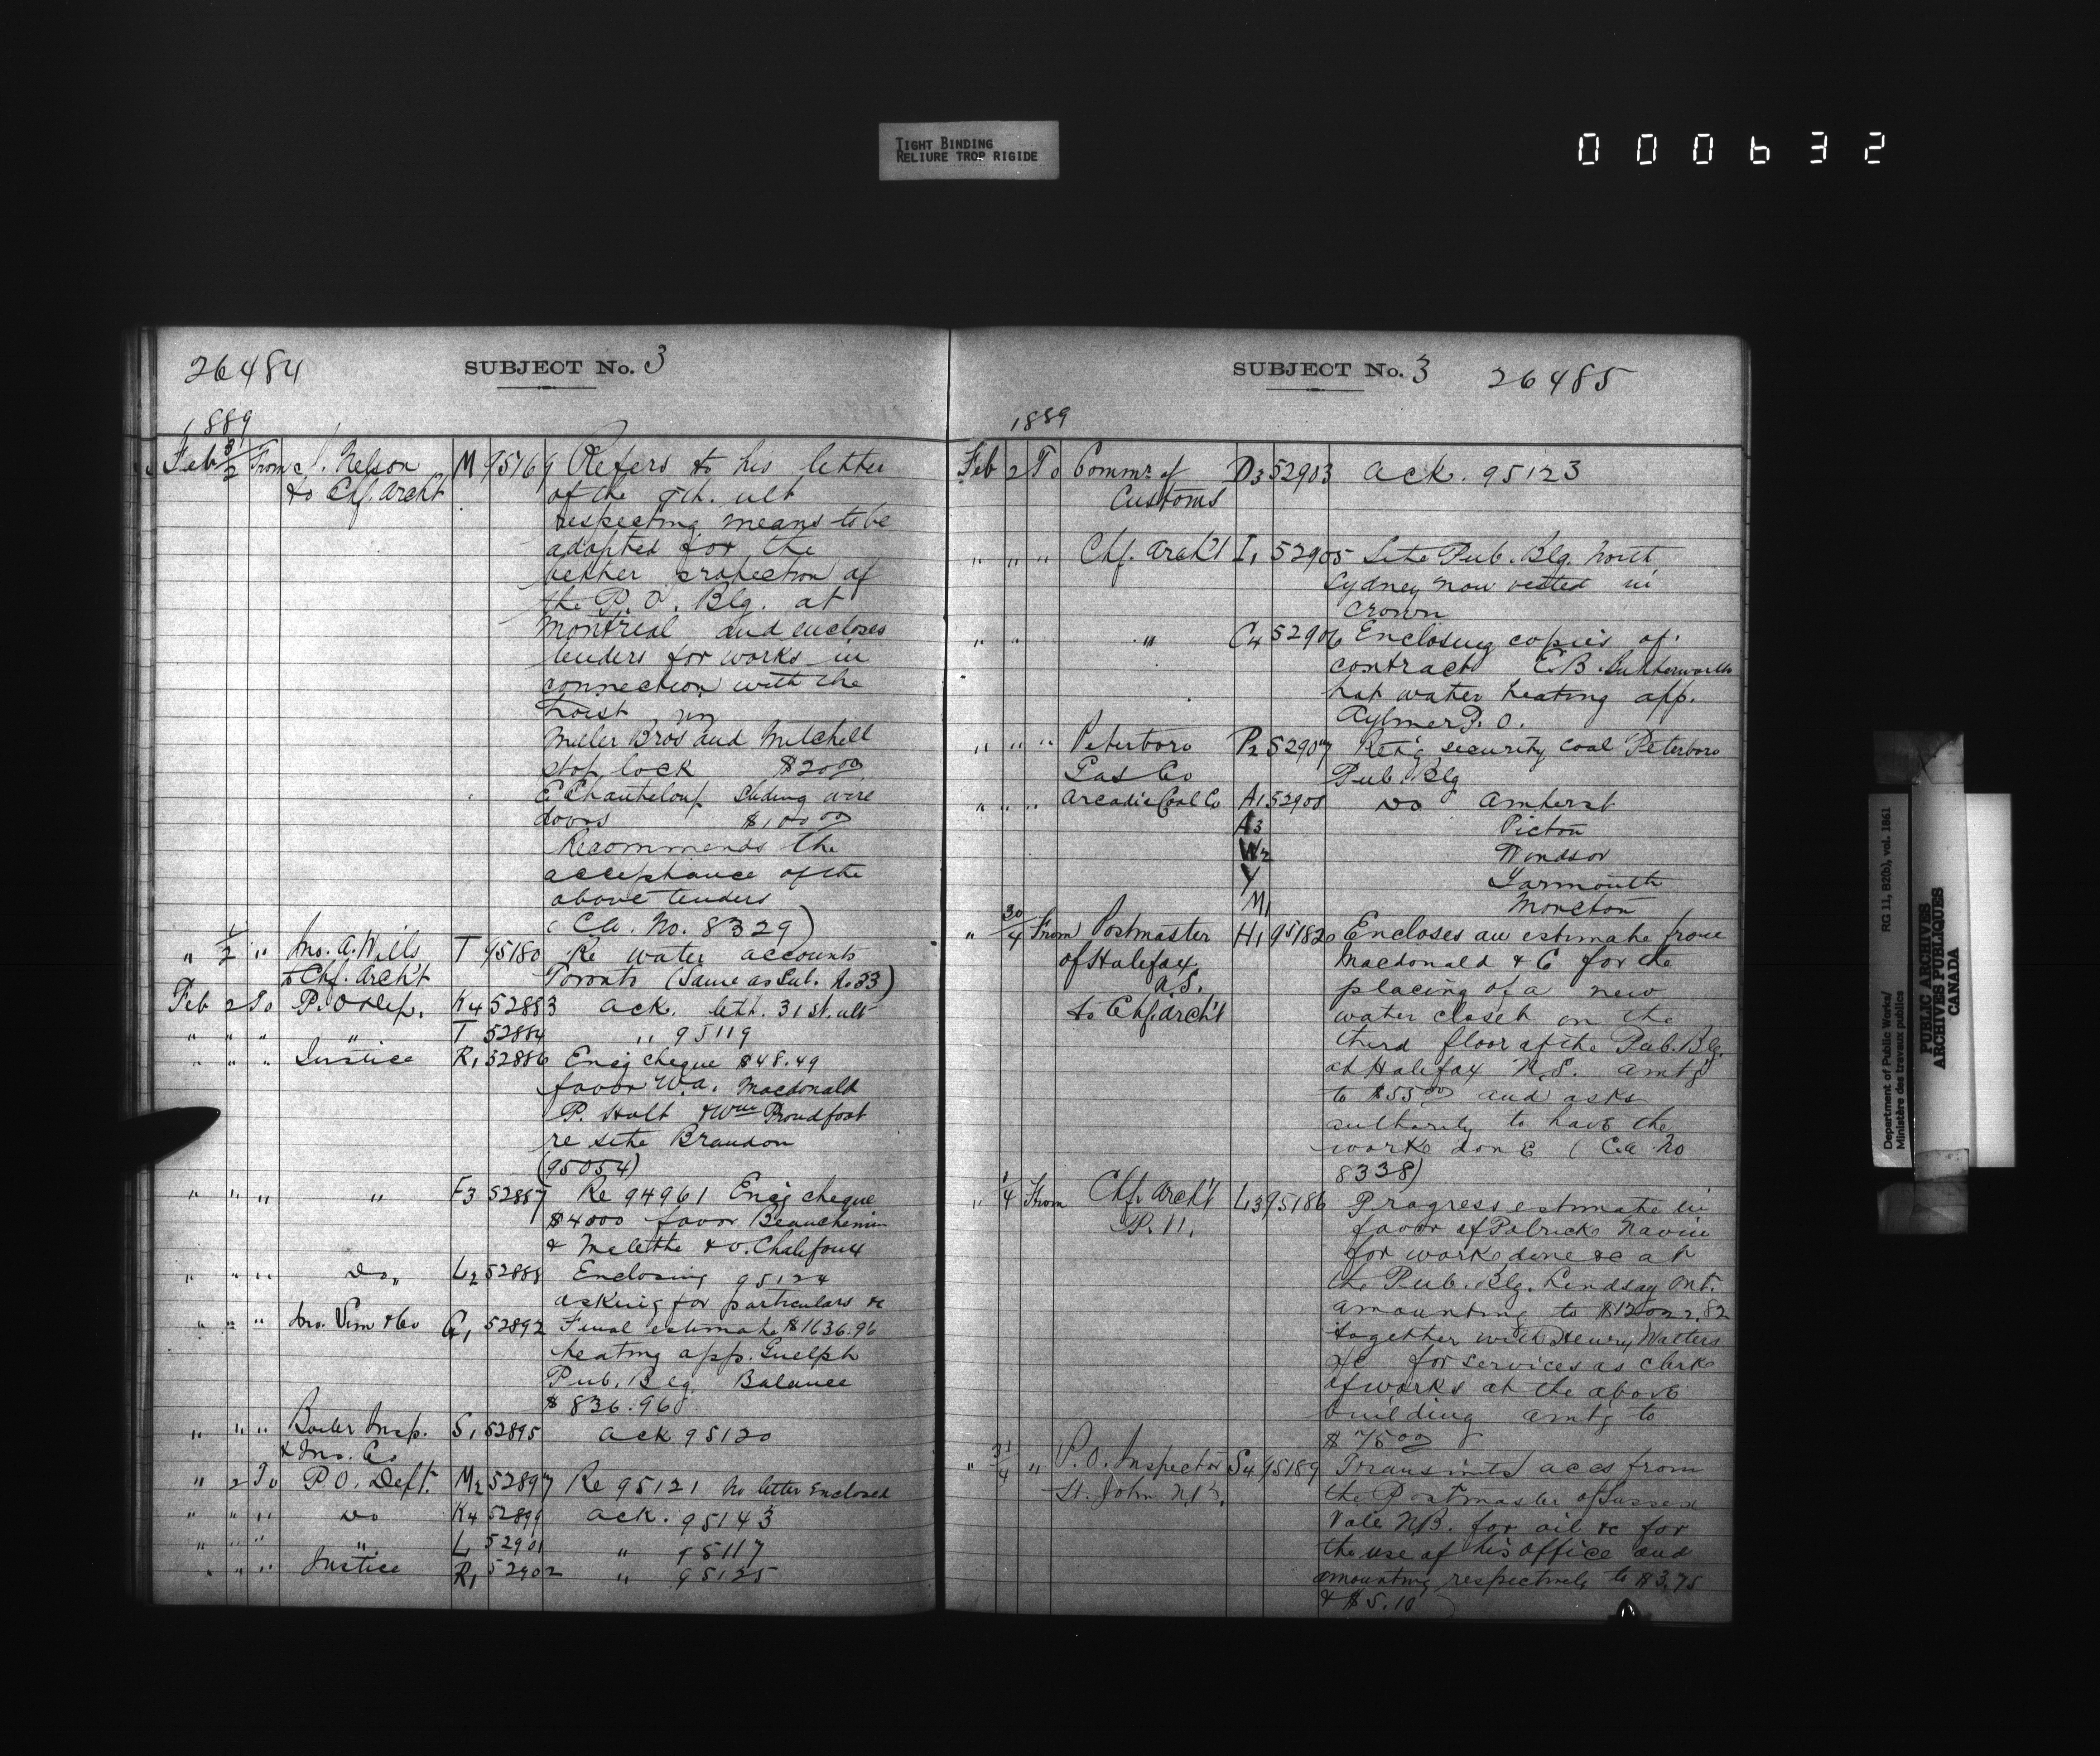 TIGHT BINDING
RELIURE TROP RIGIDE
000632
26484 SUBJECT No. 3
1889
Feb 3/2 From J. Nelson M 95169 Refers to his letter
to Chf. Archt of the 9th. ult
respecting means to be
adopted for the
better protection of
the P.O. Blg. at
Montreal and encloses
tenders for works in
connection with the
hoist
Miller Bros and Mitchell
stop lock $20.00
E Chanteloup sliding wire
doors $100.00
Recommends the
acceptance of the
above tenders
(Ca. No. 8329)
" 1/2 " Jno. A. Wills T 95180 Re water accounts
to Chf. Archt Toronto (Same as Sub. No 33)
Feb 2 To P.O Dep. K4 52883 Ack. lett. 31st. ult
" " " " T 52884 " 95119
" " " Justice R1 52886 Encg cheque $48.49
favor W.A. Macdonald
P. Holt & Wm Proudfoot
re site Brandon
(95054)
" " " " F3 52887 Re 94961 Encg cheque
$4000 favor Beauchemin
& Melette & O. Chalifoux
" " " Do " L2 52888 Enclosing 95124
asking for particulars &c
" " " Jno. Vim & Co G1 52892 Final estimate $1636.96
heating app. Guelph
Pub. Blg. Balance
$836.96
" " " Boiler Insp. S1 52895 Ack 95120
& Ins. Co
" 2 To P.O. Dept. M2 52897 Re 95121 No letter Enclosed
" " " Do K4 52899 Ack. 95143
" " " " L1 52901 " 95117
" " " Justice R1 52902 " 95125
SUBJECT No. 3 26485
1889
Feb 2 To Commr. of D3 52903 Ack. 95123
Customs
" " " Chf. Archt I1 52905 Site Pub. Blg. North
Sydney now vested in
Crown
" " " C4 52906 Enclosing copies of
contract E.B. Butterworth
hot water heating app.
Aylmer P.O.
" " " Peterboro P2 52907 Retg security coal Peterboro
Gas Co Pub Blg
" " " Arcadia Coal Co A1 52908 Do Amherst
A3 Picton
W2 Windsor
Y Yarmouth
M1 Moncton
" 30/4 From Postmaster H1 95182 Encloses an estimate from
of Halifax Macdonald & C for the
N.S. placing of a new
to Chf. Archt water closet on the
third floor of the Pub. Blg.
at Halifax N.S. amtg
to $55.00 and asks
authority to have the
work done (Ca No
8338)
" 1/4 From Chf. Archt L3 95186 Progress estimate in
P.W. favor of Patrick Navin
for work done &c at
the Pub. Blg. Lindsay Ont.
amounting to
together with Henry Walters
a/c for services as clerk
of works at the above
building amtg to
$75.00
" 31/4 " P.O. Inspector S4 95189 Transmits accs from
St. John N.B. the Postmaster of Sussex
Vale N.B. for oil &c for
the use of his office and
amounting respectively to $3.75
& $5.10
Department of Public Works/ RG 11, B2(b), vol. 1861
Ministère des travaux publics
PUBLIC ARCHIVES
ARCHIVES PUBLIQUES
CANADA